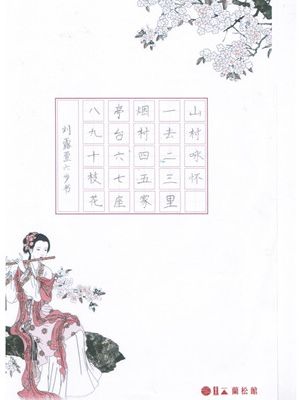 山村咏怀
一去二三里
烟村四五家
亭台六七座
八九十枝花
刘露 六岁书
蘭松館